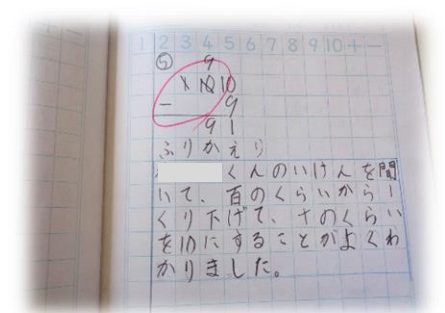 1 2 3 4 5 6 7 8 9 10 + −
⑤ 9
1 10 10
− 9
9 1
ふりかえり
くんのいけんを聞
いて、百のくらいから1
くり下げて、十のくらい
を10にすることがよくわ
かりました。